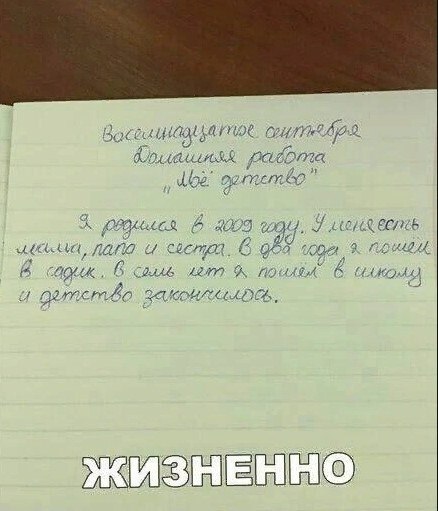 Восемнадцатое сентября
Домашняя работа
„Моё детство"
Я родился в 2009 году. У меня есть
мама, папа и сестра. В два года я пошел
в садик. В семь лет я пошел в школу
и детство закончилось.
ЖИЗНЕННО